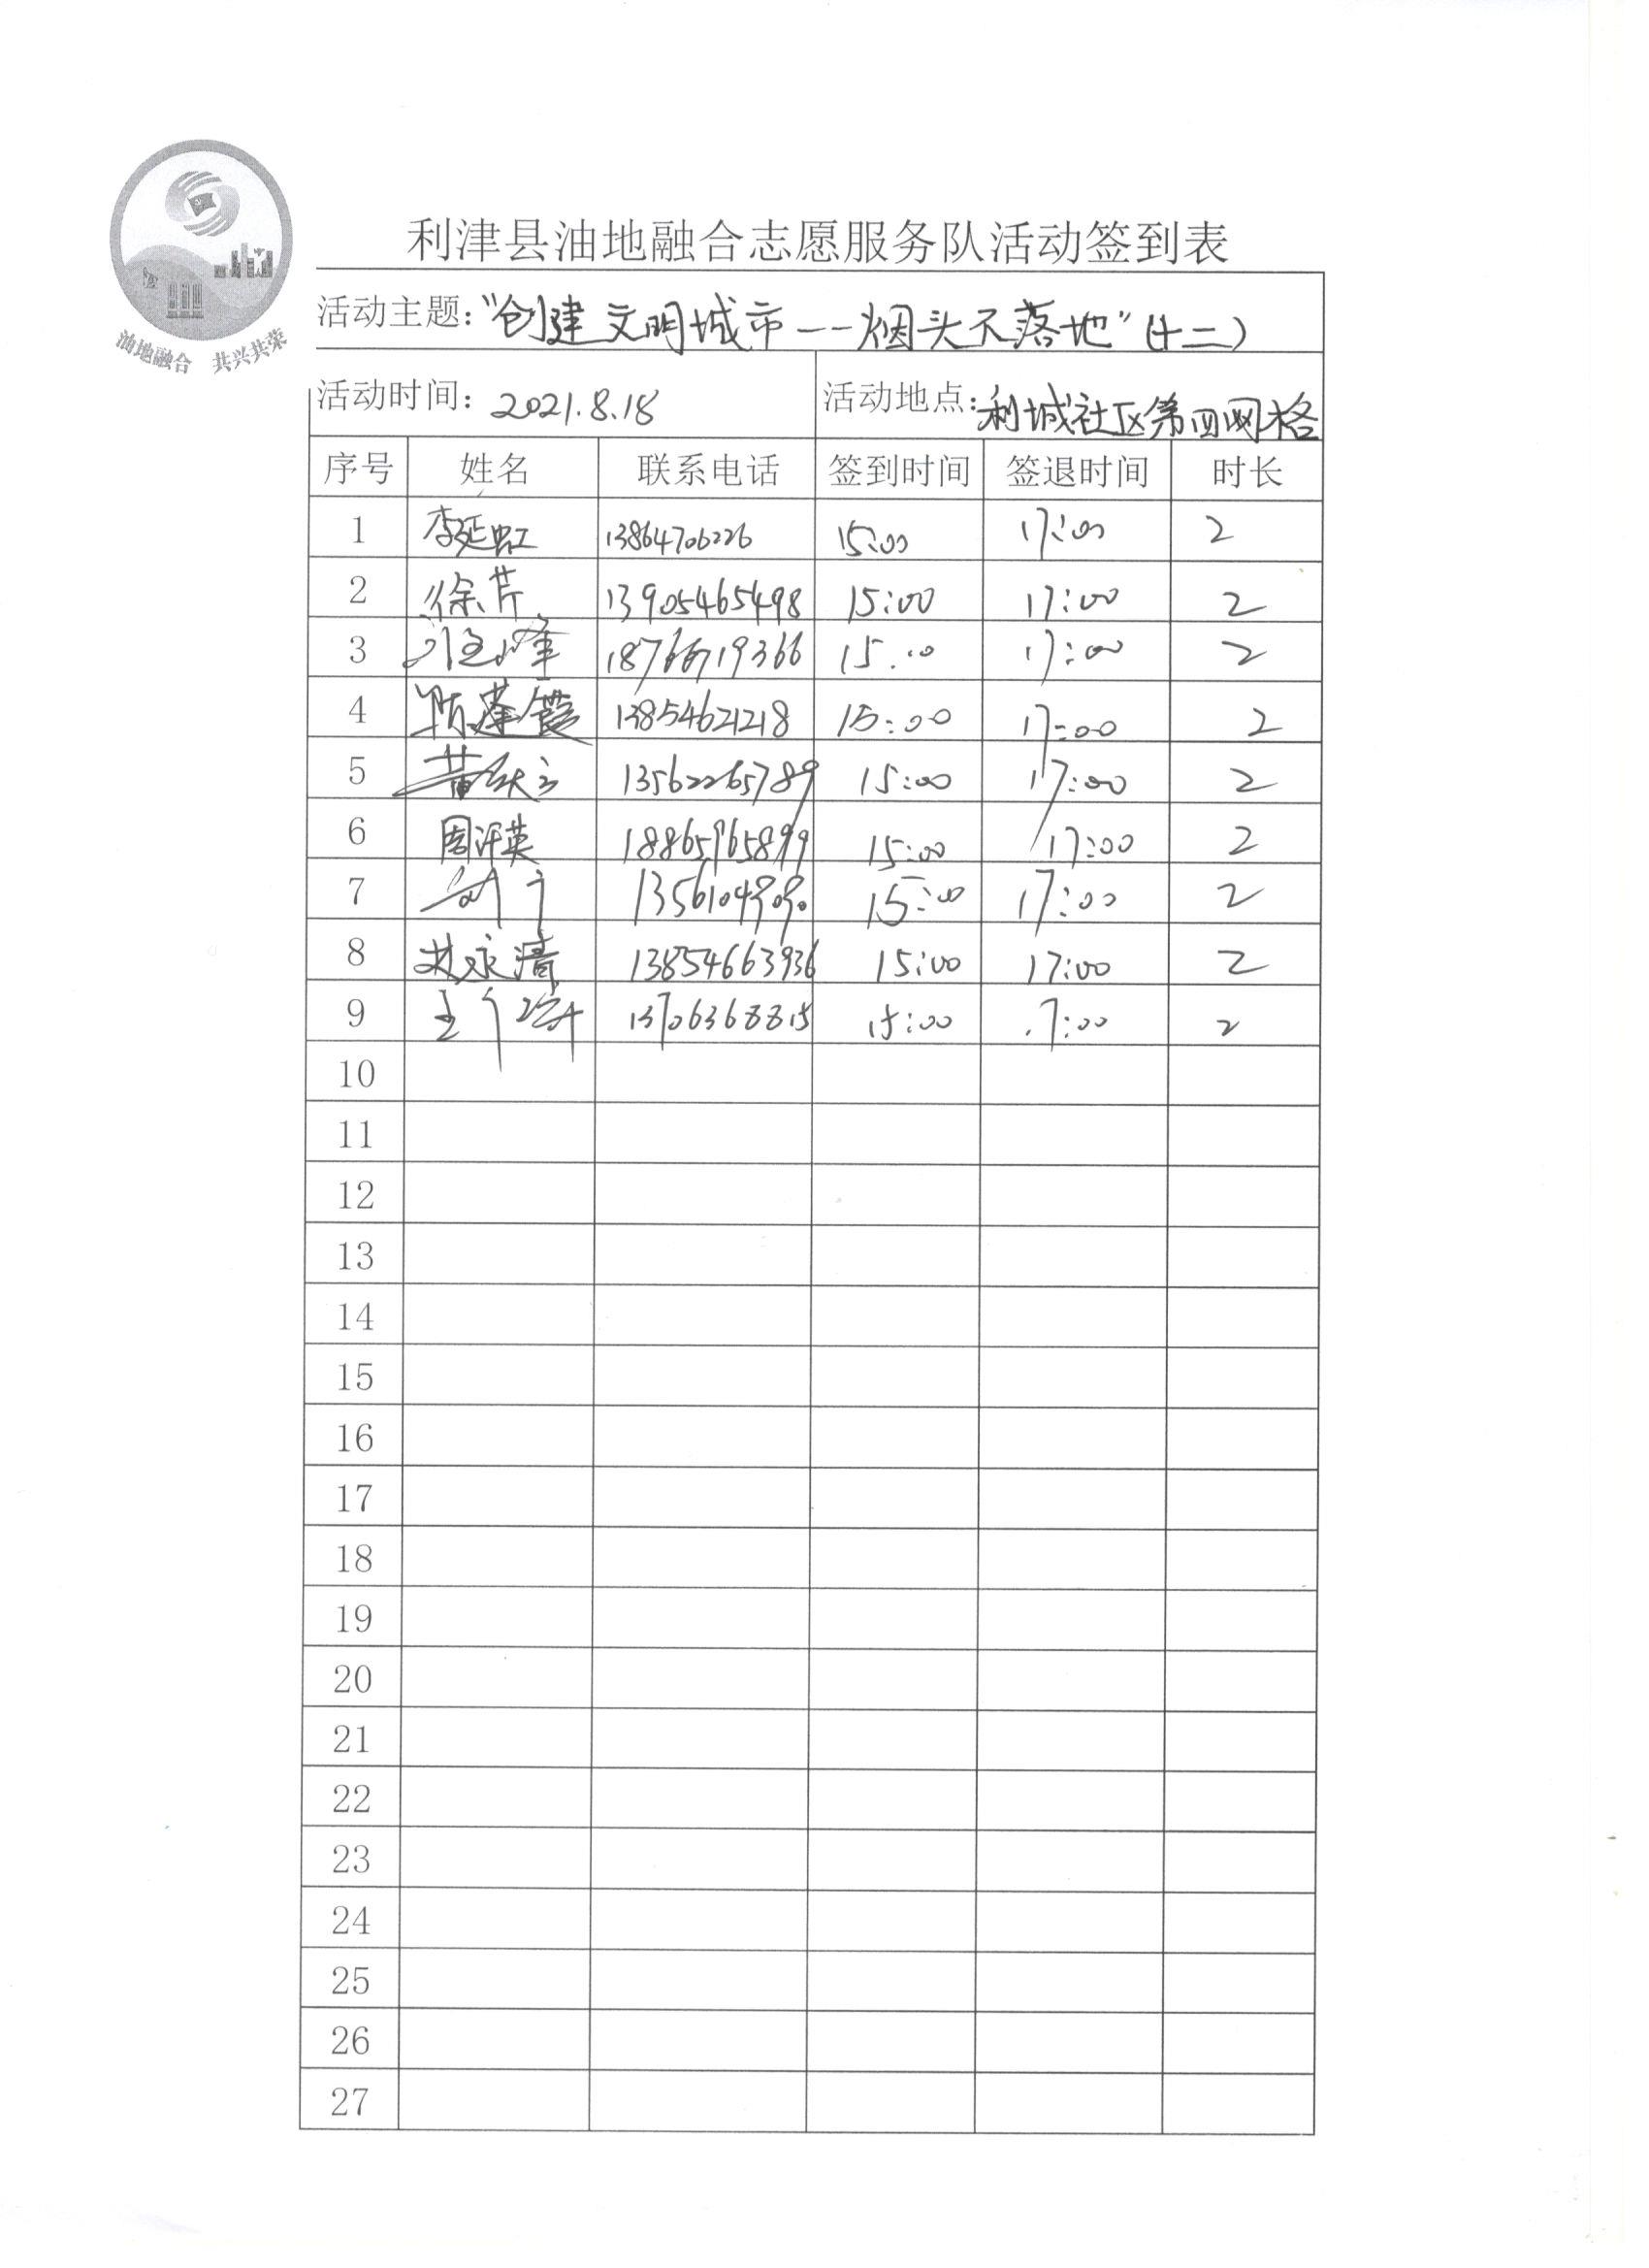 利津县油地融合志愿服务队活动签到表
油地融合 共兴共荣
活动主题:“创建文明城市--烟头不落地”(十二)
活动时间: 2021.8.18 活动地点:利城社区第四网格
序号 姓名 联系电话 签到时间 签退时间 时长
1 李延虹 13864706226 15:00 17:00 2
2 徐芹 13905465498 15:00 17:00 2
3 18766719366 15:00 17:00 2
4 陈蓬霞 13854621218 15:00 17:00 2
5 13562265789 15:00 17:00 2
6 周汗英 18865965899 15:00 17:00 2
7 15:00 17:00 2
8 林永清 13854663936 15:00 17:00 2
9 13706368815 15:00 17:00 2
10
11
12
13
14
15
16
17
18
19
20
21
22
23
24
25
26
27